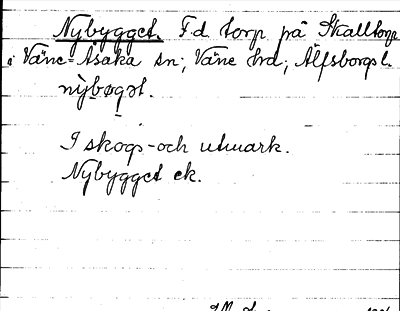 Nybygget. F.d. torp på Skalltorp
i Väne-Åsaka sn; Väne hd; Älfsborgs l.
nỳbøgət.
I skogs- och utmark.
Nybygget ek.